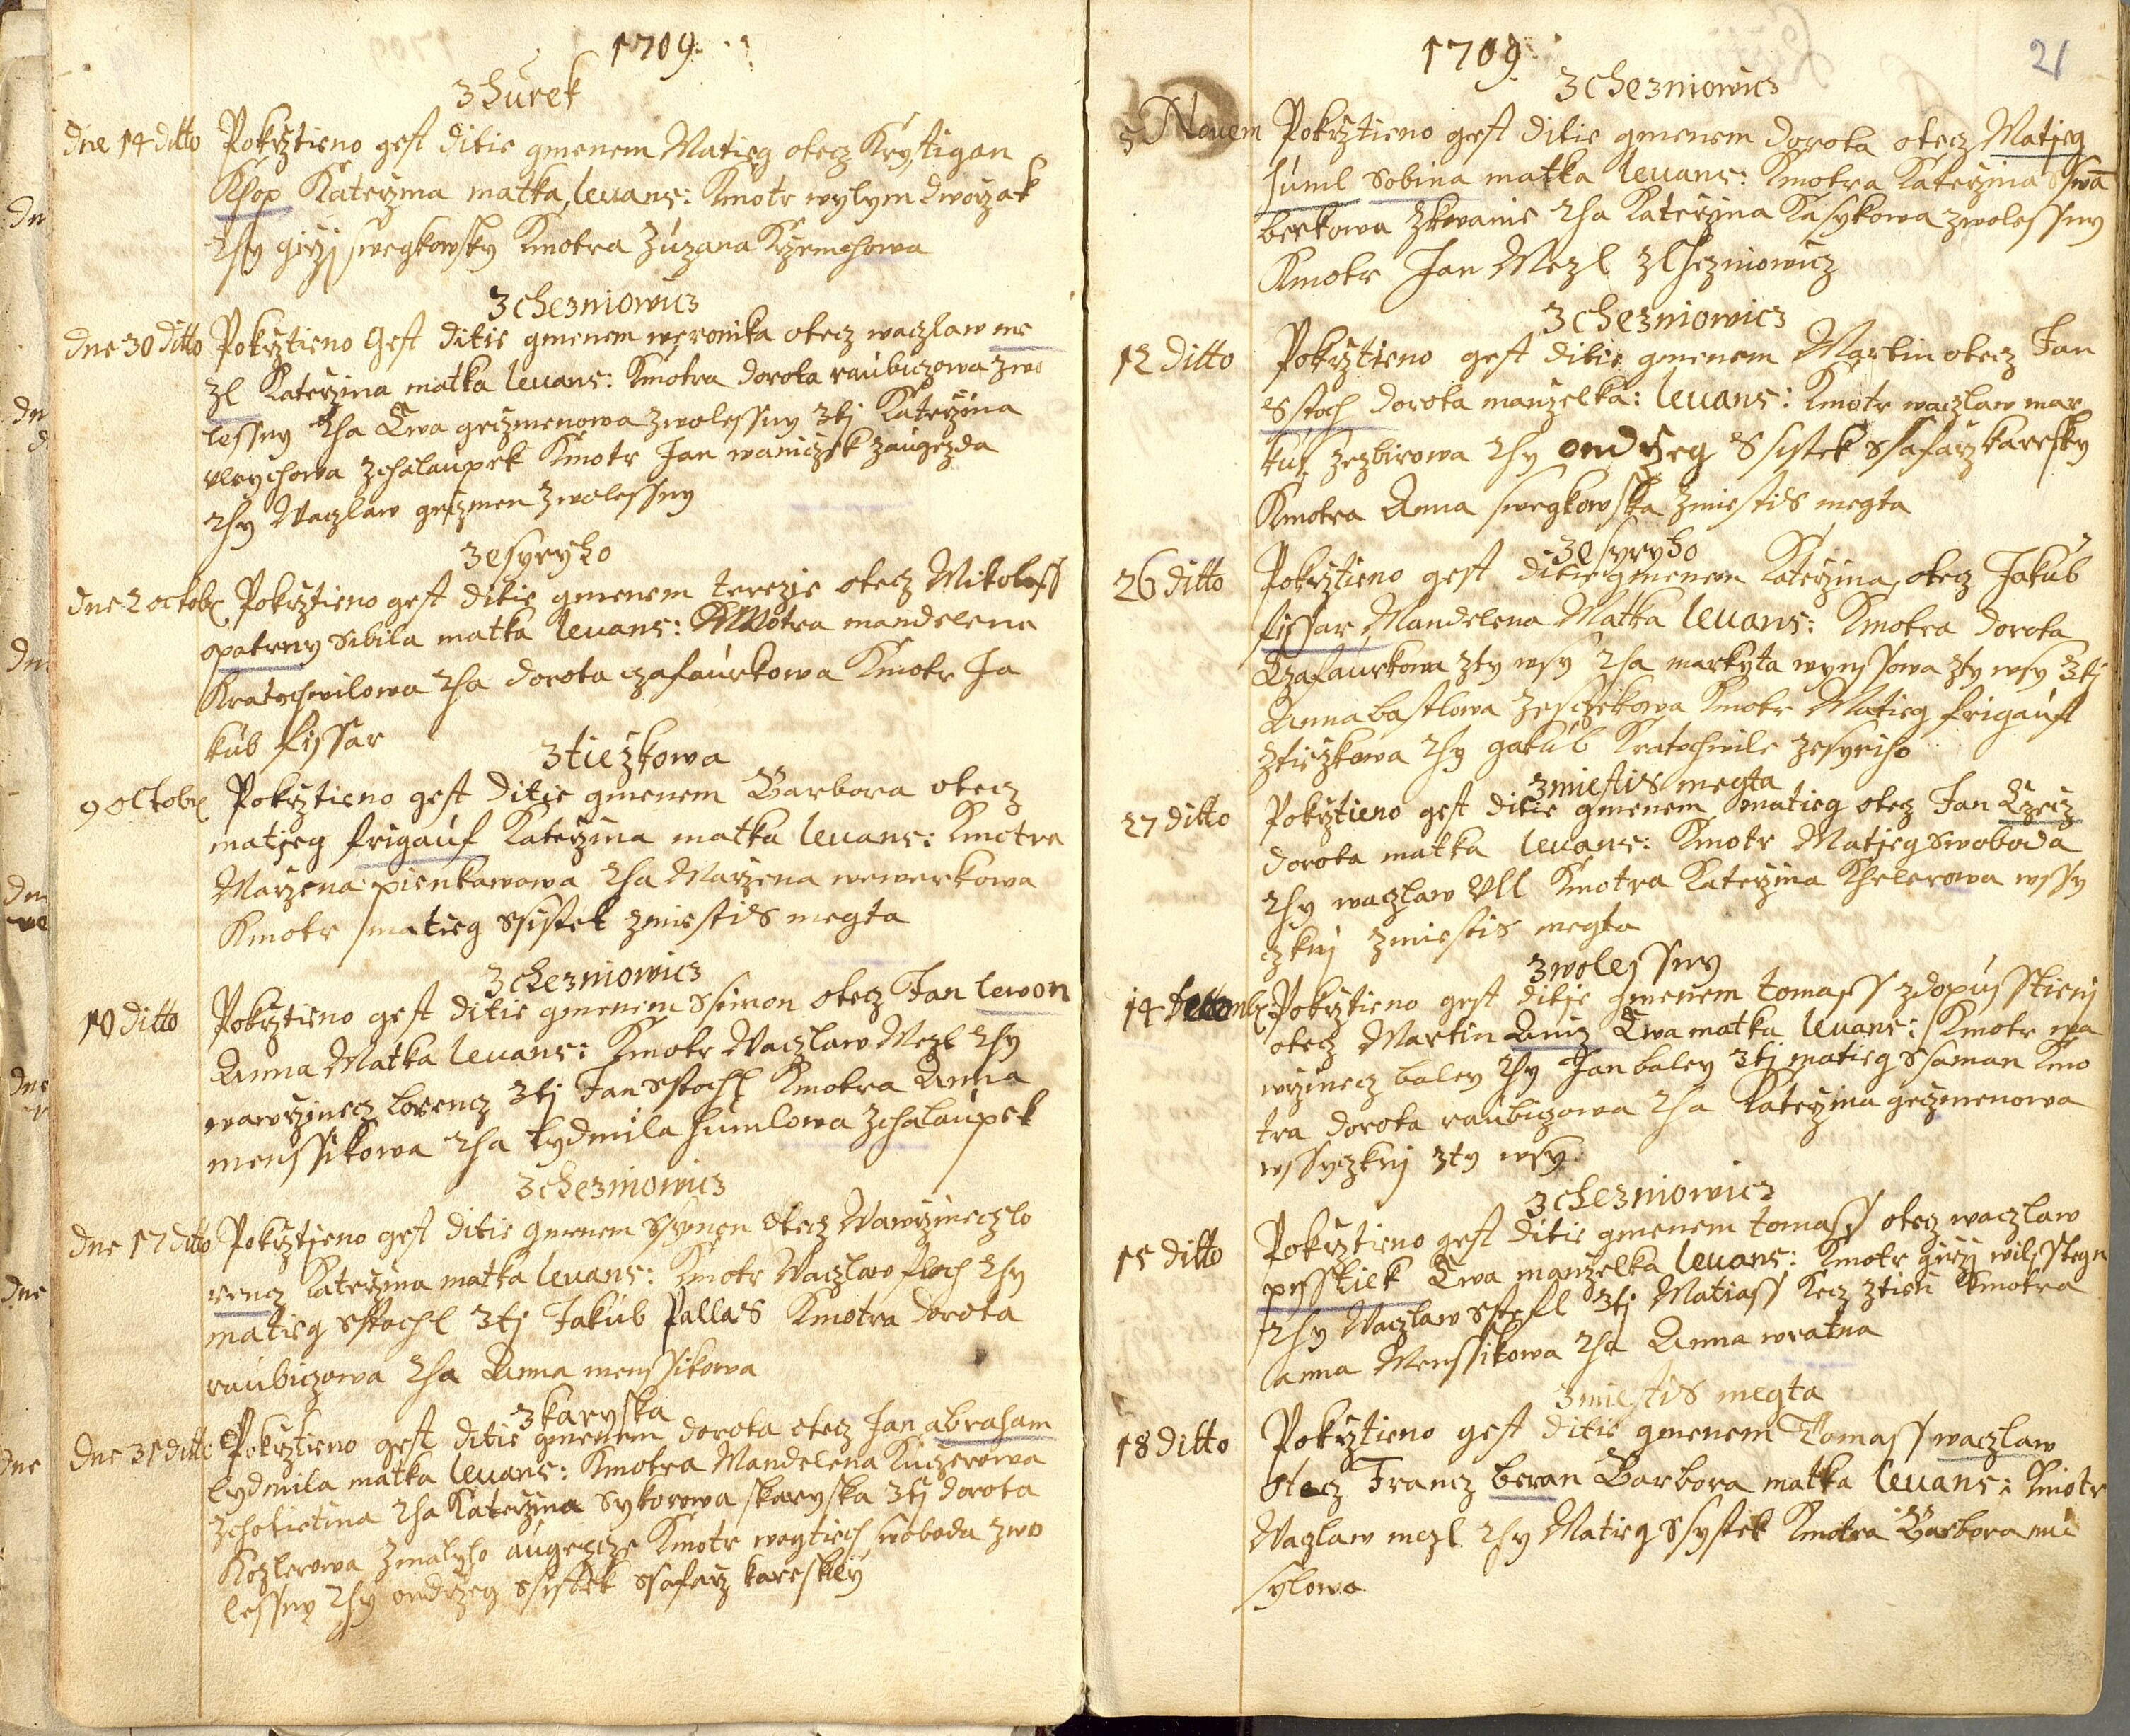 1709
z hurek
dne 14 ditto Pokrztieno gest ditie gmenem Matieg otecz Krystigan
Khop Katerzina matka, levans: Kmotr wylym dworzak
2hy girzj swegkowsky Kmotra Zuzana Krzemehowa
z chezniowicz
dne 30 ditto Pokrztieno Gest ditie gmenem weronika otecz waczlaw me
zl Katerzina matka levans: Kmotra dorota raubiczowa zwo
lessny 2ha Ewa geizmenowa zwolessny 3tj Katerzina
vlrychowa zchalaupek Kmotr Jan waniczek zaugezda
2hy Waczlaw geizmen zwolessny
zesyryho
dne 2 octobr Pokrztieno gest ditie gmenem terezie otecz Mikolass
opatrny Sibila matka levans: KMotra mandelena
Kratochwilowa 2ha dorota czafaurkowa Kmotr Ja
kub fissar
ztiezkowa
9 octobr Pokrztieno gest ditie gmenem Barbora otecz
matjeg frigauf Katerzina matka levans: Kmotra
Marzena pienkawowa 2ha Marzena wewerkowa
Kmotr matieg Ssistek zmiestis megta
z chezniowicz
10 ditto Pokrztieno gest ditie gmenem Ssimon otecz Jan lewon
Anna Matka levans: Kmotr Waczlaw Mezl 2hy
wawrzinecz lorencz 3tj Jan Sstochl Kmotra Anna
menssikowa 2ha lydmila humlowa zchalaupek
z chezniowicz
dne 17 ditto Pokrztieno gest ditie gmenem Ssymon otecz Wawrzinecz lo
rencz Katerzina matka levans: Kmotr Waczlaw ploch 2hy
matieg Sstochl 3tj Jakub Pallas Kmotra dorota
raubiczowa 2ha Anna menssikowa
zkaryska
dne 31 ditto Pokrztieno gest ditie gmenem dorota otecz Jan abraham
lydmila matka levans: Kmotra Mandelena Kuczerowa
zchotietina 2ha Katerzina Sykorowa skaryska 3tj dorota
Kozlerowa zmalyho augezdze Kmotr wogtiech swoboda zwo
lessny 2hy ondrzeg Ssistek Ssafarz kareskey
1709 21
z chezniowicz
5 Novem Pokrztieno gest ditie gmenem dorota otecz Matjeg
huml Sobina matka levans: Kmotra Katerzina Sswa
berkowa zkowanie 2ha Katerzina Kasykowa zwolessny
Kmotr Jan Mezl zChezniowicz
z chezniowicz
12 ditto Pokrztieno gest ditie gmenem Martin otecz Jan
Sstoch dorota manzelka: levans: Kmotr waczlaw mar
kus zezbirowa 2hy ondrzeg Ssistek Ssafarz karesky
Kmotra Anna swegkowska zmiestis megta
zesyryho
26 ditto Pokrztieno gest ditie gmenem Katerzina, otecz Jakub
fissar Mandelena Matka levans: Kmotra dorota
Czafaurkowa zty wsy 2ha markyta wynssowa zty wsy 3tj
Anna bastlowa zesczikowa Kmotr Matieg frigauft
ztiezkowa 2hy gakub Kratochwile zesyriho
zmiestis megta
27 ditto Pokrztieno gest ditie gmenem matieg otecz Jan Czecz
dorota matka levans: Kmotr Matjeg Swoboda
2hy waczlaw Ull Kmotra Katerzina Khelerowa wssy
czknj zmiestis megta
zwolessny
14 decembr Pokrztieno gest ditje gmenem tomass zdopusstienj
otecz Martin Auiz Ewa matka levans: Kmotr wa
wrzinecz baley 2hy Jan baley 3tj matieg Ssaman Kmo
tra dorota raubiczowa 2ha Katerzina geizmenowa
wssyczknj zty wsy
z chezniowicz
15 ditto Pokrztieno gest ditie gmenem tomass otecz waczlaw
pysstiek Ewa manzelka levans: Kmotr girzj wilsstegn
2hy Waczlaw Stefl 3tj Matiass Kecz ztień Kmotra
anna Menssikowa 2ha Anna wratna
zmiestis megta
18 ditto Pokrztieno gest ditie gmenem Tomass waczlaw
otecz Francz beran Barbora matka levans: Kmotr
Waczlaw mezl 2hy Matieg Ssystek Kmotra Barbora mu
sylowa